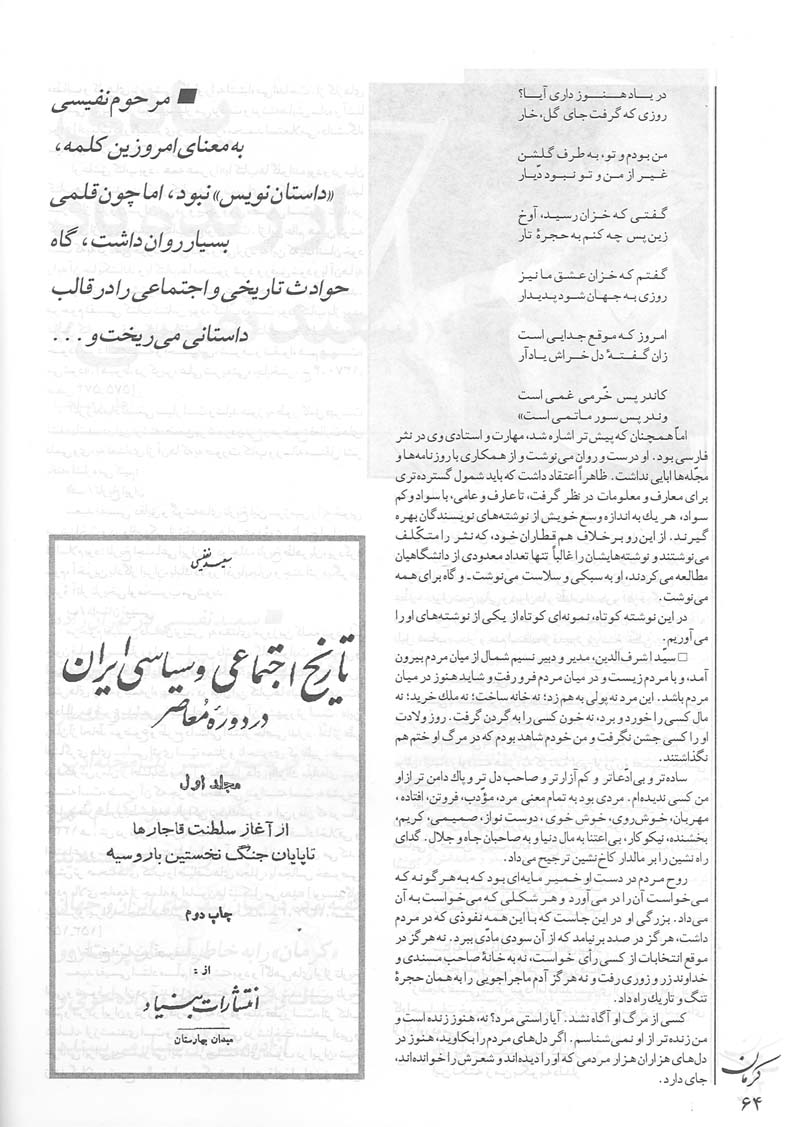 در یاد هنوز داری آیا؟
روزی که گرفت جای گل، خار
من بودم و تو، به طرف گلشن
غیر از من و تو نبود دّیار
گفتی که خزان رسید، آوخ
زین پس چه کنم به حجرهٔ تار
گفتم که خزان عشق ما نیز
روزی به جهان شود پدیدار
امروز که موقع جدایی است
زان گفتهٔ دل خراش یادآر
کاندر پس خرّمی غمی است
وندر پس سور ماتمی است»
امّا همچنان که پیش‌تر اشاره شد، مهارت و استادی وی در نثر
فارسی بود. او درست و روان می‌نوشت و از همکاری با روزنامه‌ها و
مجلّه‌ها ابایی نداشت. ظاهراً اعتقاد داشت که باید شمول گسترده‌تری
برای معارف و معلومات در نظر گرفت، تا عارف و عامی، با سواد و کم
سواد، هر یك به اندازه وسع خویش از نوشته‌های نویسندگان بهره
گیرند. از این رو برخلاف هم قطاران خود، که نثر را متکلّف
می‌نوشتند و نوشته‌هایشان را غالباً تنها تعداد معدودی از دانشگاهیان
مطالعه می‌کردند، او به سبکی و سلاست می‌نوشت ـ و گاه برای همه
می‌نوشت.
در این نوشته کوتاه، نمونه‌ای کوتاه از یکی از نوشته‌های او را
می‌آوریم.
□ سیّد اشرف‌الدین، مدیر و دبیر نسیم شمال از میان مردم بیرون
آمد، و با مردم زیست و در میان مردم فرو رفت و شاید هنوز در میان
مردم باشد. این مرد نه پولی به هم زد؛ نه خانه ساخت؛ نه ملك خرید؛ نه
مال کسی را خورد و برد، نه خون کسی را به گردن گرفت. روز ولادت
او را کسی جشن نگرفت و من خودم شاهد بودم که در مرگ او ختم هم
نگذاشتند.
ساده‌تر و بی ادّعاتر و کم آزارتر و صاحب دل تر و پاك دامن تر از او
من کسی ندیده‌ام. مردی بود به تمام معنی مرد، مؤدّب، فروتن، افتاده،
مهربان، خوش‌روی، خوش خوی، دوست نواز، صمیمی، کریم،
بخشنده، نیکوکار، بی‌اعتنا به مال دنیا و به صاحبان جاه و جلال. گدای
راه نشین را بر مالدار کاخ نشین ترجیح می‌داد.
روح مردم در دست او خمیر مایه‌ای بود که به هر گونه که
می‌خواست آن را در می‌آورد و هر شکلی که می‌خواست به آن
می‌داد. بزرگی او در این جاست که با این همه نفوذی که در مردم
داشت، هرگز در صدد بر نیامد که از آن سودی مادّی ببرد. نه هرگز در
موقع انتخابات از کسی رأی خواست، نه به خانهٔ صاحب مسندی و
خداوند زر و زوری رفت و نه هرگز آدم ماجراجویی را به همان حجرهٔ
تنگ و تاریك راه داد.
کسی از مرگ او آگاه نشد. آیا راستی مرد؟ نه، هنوز زنده است و
من زنده تر از او نمی شناسم. اگر دل‌های مردم را بکاوید، هنوز در
دل‌های هزاران هزار مردمی که او را دیده‌اند و شعرش را خوانده‌اند،
جای دارد.
■ مرحوم نفیسی
به معنای امروزین کلمه،
«داستان نویس» نبود، اما چون قلمی
بسیار روان داشت، گاه
حوادث تاریخی و اجتماعی را در قالب
داستانی می‌ریخت و ...
سعید نفیسی
تاریخ اجتماعی و سیاسی ایران
در دورهٔ معاصر
مجلد اول
از آغاز سلطنت قاجارها
تا پایان جنگ نخستین با روسیه
چاپ دوم
از :
انتشارات بنیاد
میدان بهارستان
کرمان
۶۴